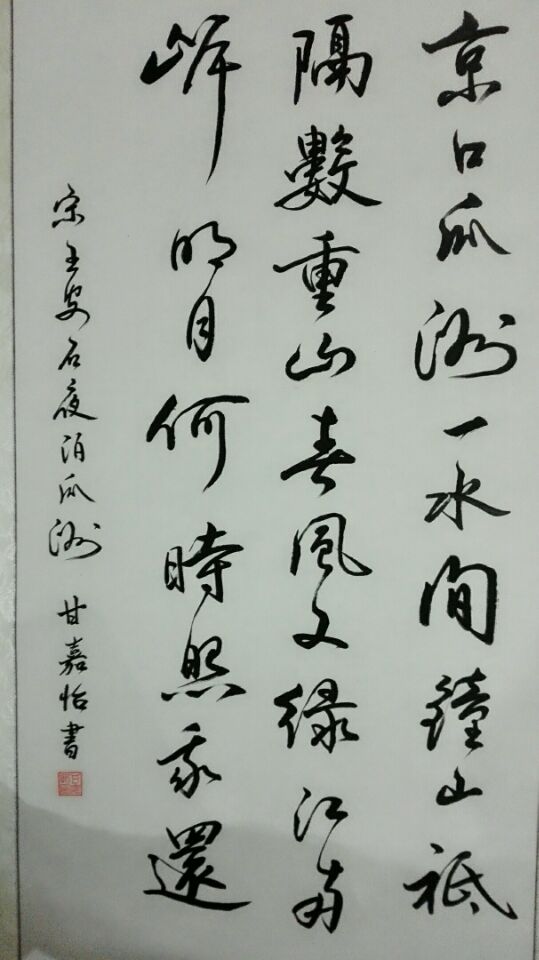 京口瓜洲一水間鐘山祇
隔數重山春風又綠江南
岸明月何時照我還
宋王安石夜泊瓜洲 甘嘉怡書